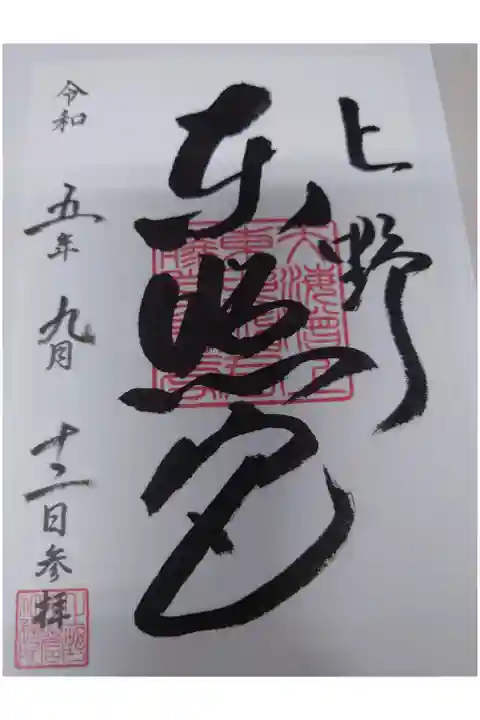 上野
東照宮
令和五年九月十二日参拝